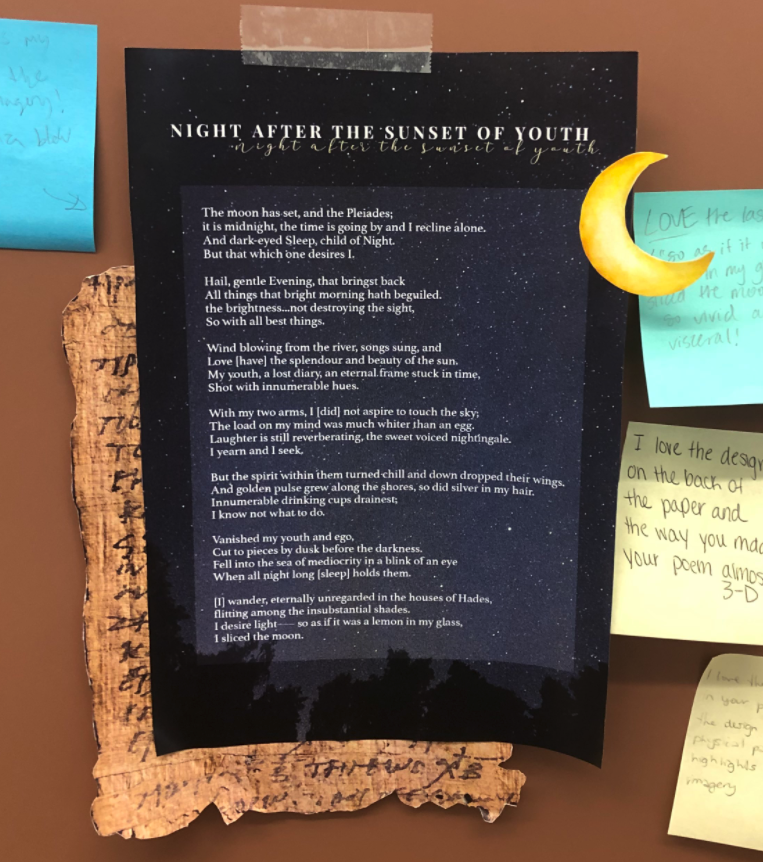 NIGHT AFTER THE SUNSET OF YOUTH
night after the sunset of youth
The moon has set, and the Pleiades;
it is midnight, the time is going by and I recline alone.
And dark-eyed Sleep, child of Night.
But that which one desires I.
Hail, gentle Evening, that bringst back
All things that bright morning hath beguiled.
the brightness...not destroying the sight,
So with all best things.
Wind blowing from the river, songs sung, and
Love [have] the splendour and beauty of the sun.
My youth, a lost diary, an eternal frame stuck in time,
Shot with innumerable hues.
With my two arms, I [did] not aspire to touch the sky;
The load on my mind was much whiter than an egg.
Laughter is still reverberating, the sweet voiced nightingale.
I yearn and I seek.
But the spirit within them turned chill and down dropped their wings.
And golden pulse grew along the shores, so did silver in my hair.
Innumerable drinking cups drainest;
I know not what to do.
Vanished my youth and ego,
Cut to pieces by dusk before the darkness.
Fell into the sea of mediocrity in a blink of an eye
When all night long [sleep] holds them.
[I] wander, eternally unregarded in the houses of Hades,
flitting among the insubstantial shades.
I desire light—— so as if it was a lemon in my glass,
I sliced the moon.
my
the
blow
LOVE the las
as if it
in my g
the moo
so vivid a
visceral!
I love the design
on the back of
the paper and
the way you mad
your poem almos
3-D
I love the
in your p
the design
physical p
highlights
imagery